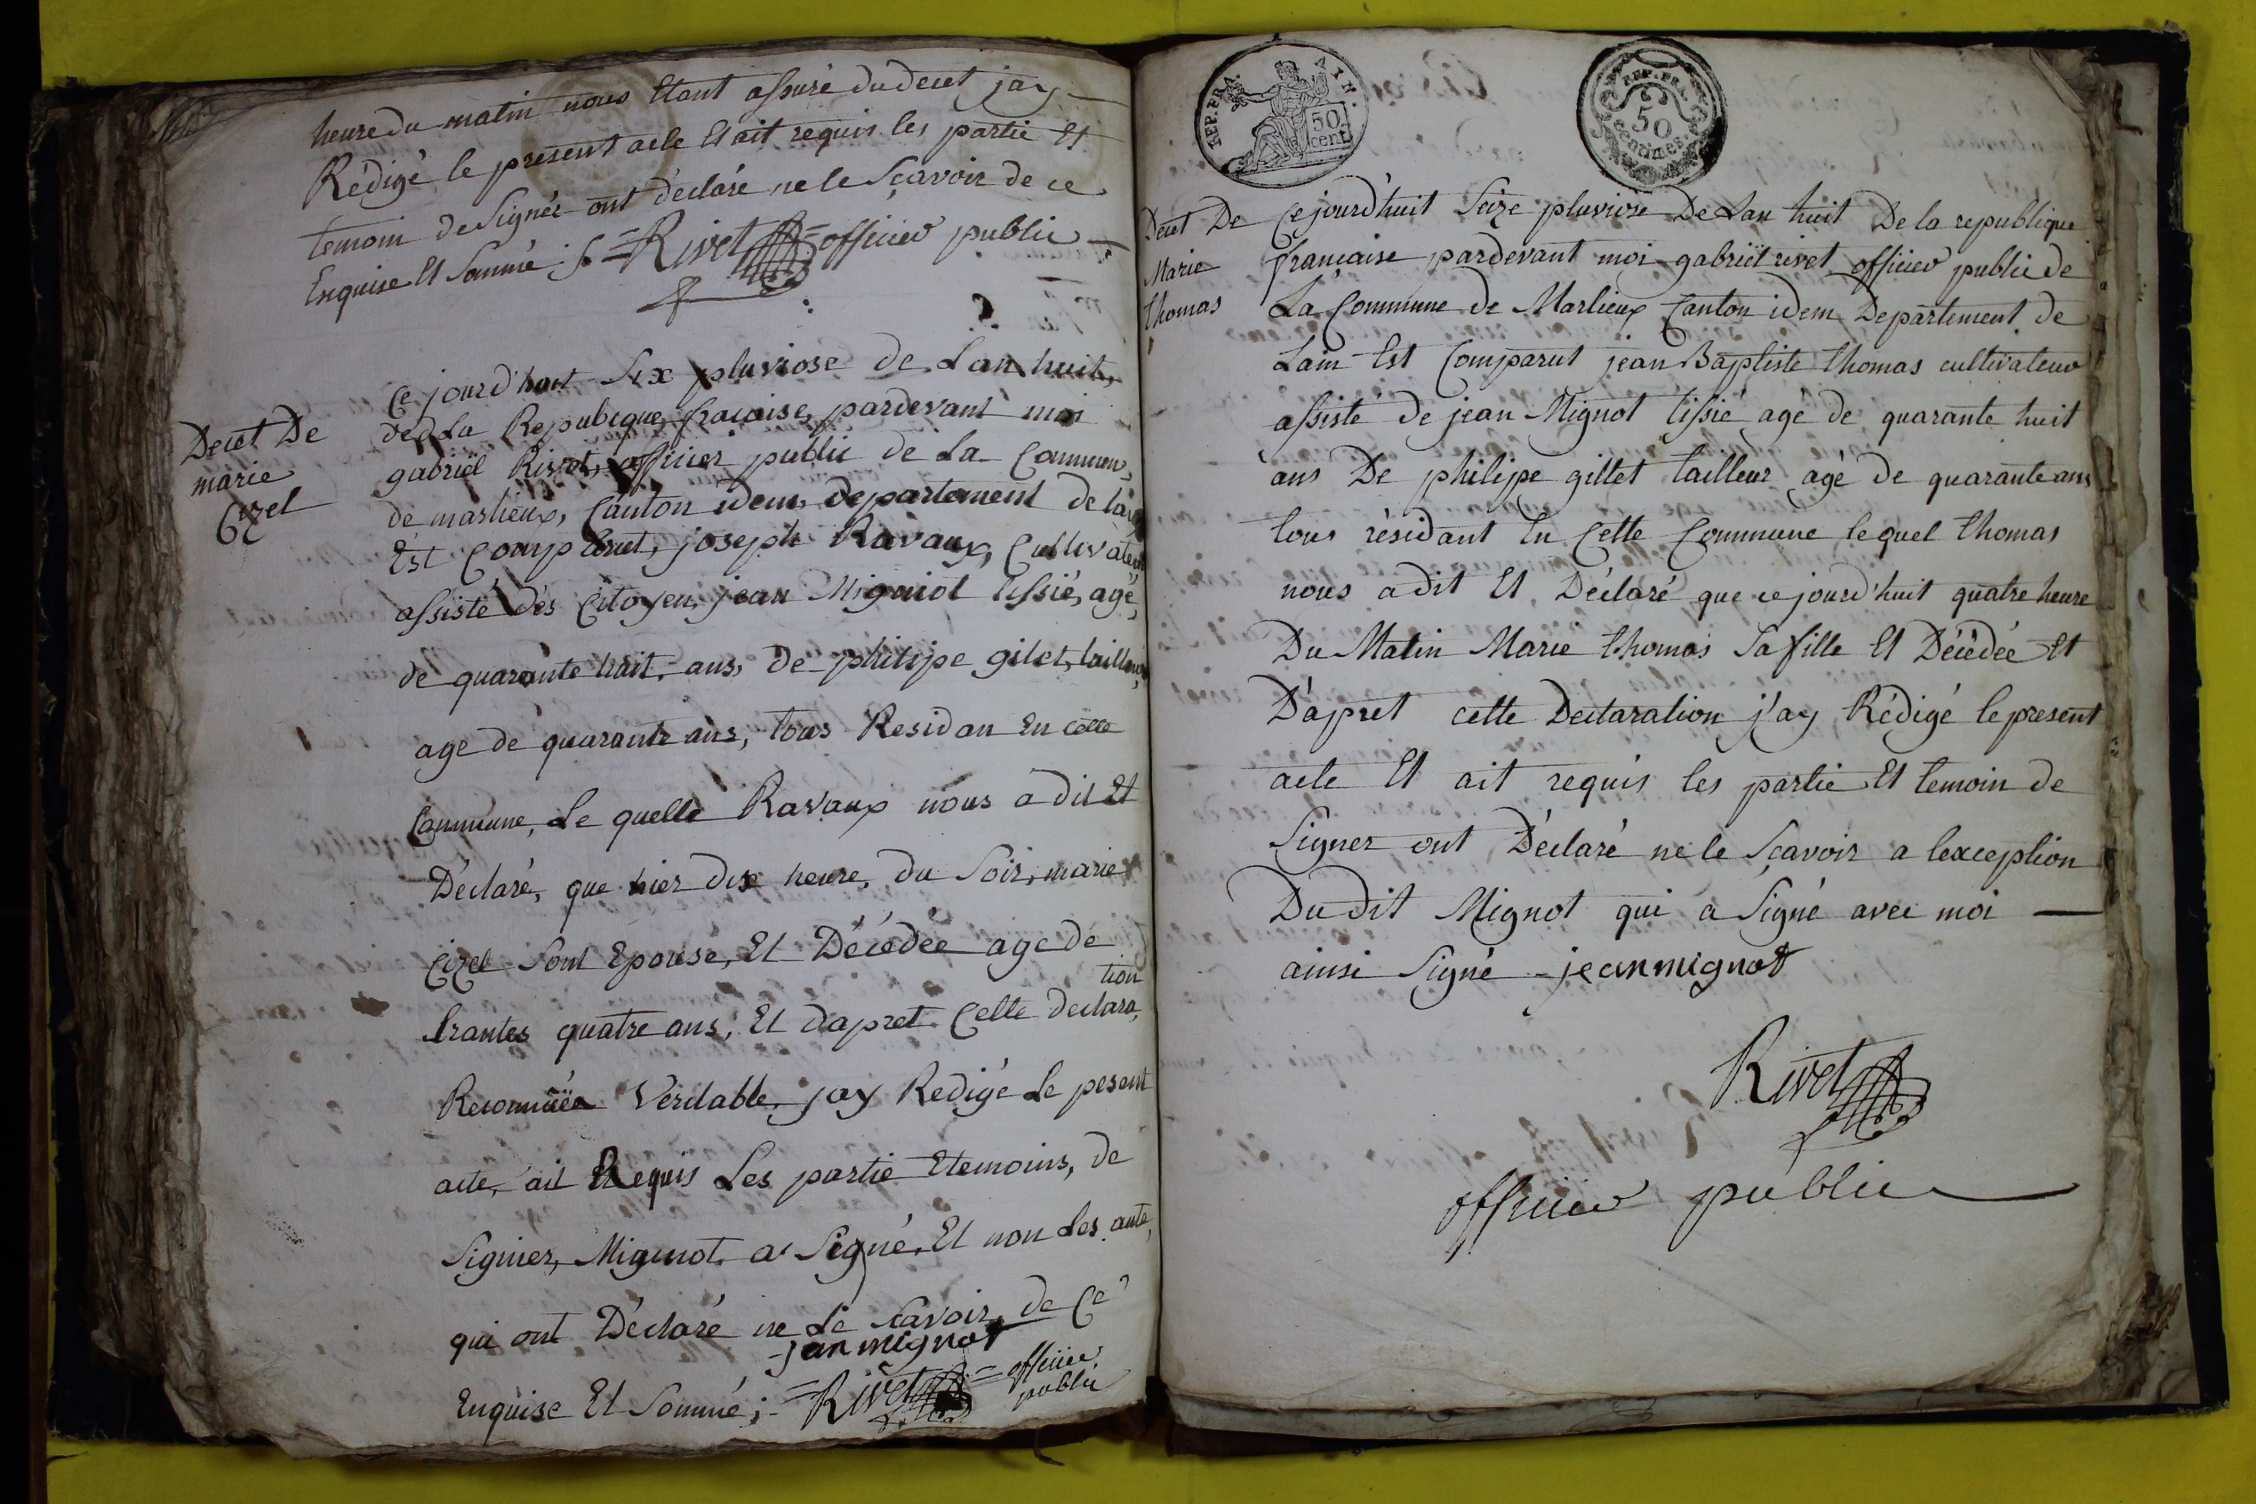 heure du matin nous Etant assuré du decet jay
Rédigé le present acte Et ait requis les partie Et
temoin de Signér ont déclaré ne le Sçavoir de ce
Enquise Et Sommé ;. = Rivet = officier public
Decet De
marie
Cizel
Ce jourd'huit Six pluviose de Lan huit,
de La Repubique fraçaise, pardevant moi
gabriël Rivet, officier public de La Commun,
de marlieux, Canton idem, departement de lain
Est Comparut, joseph Ravaux, Cultivateur
assisté des Citoyen, jean Miguiot tissié, agé,
de quarante huit, ans, De philipe gilet, tailleur,
age de quarante ans, tous Residan En cette
Commune, Le quelle Ravaux nous a dit Et
Déclaré, que hier dix heure, du Soir, marie
Cizel Sont Epouse, Et Décédée age de
trantes quatre ans, Et dapret Cette declara,
tion
Reconnüëe Veritable, jay Redigé Le pesent
acte, ait Requis Les partie Etemoins, de
Signier, Miguiot. a Signé, Et non Les aute,
qui ont Déclaré ne Le Scavoir, de Ce
jan mignot
Enquise Et Sommé ;. = Rivet = officier
public
REP. FRA. AIN.
50
cent.
REP. FRA.
50
centimes
Decet De
Marie
thomas
Ce jourd'huit Seize pluviose De Lan huit De la republique
française pardevant moi gabriël rivet officier public de
La Commune de Marlieux Canton idem Departement de
Lain Est Comparut jean Baptiste thomas cultivateur
assisté de jean Mignot tissié agé de quarante huit
ans De philipe gillet tailleur agé de quarante ans
tous résidant En Cette Commune lequel thomas
nous a dit Et Déclaré que ce jourd'huit quatre heure
Du Matin Marie thomas Sa fille Et Décédée Et
D'apret cette Declaration j'ay Rédigé le present
acte Et ait requis les partie Et temoin de
Signer ont Déclaré ne le Sçavoir a lexception
Du dit Mignot qui a Signé avec moi
ainsi Signé - jean mignot
Rivet
officier public